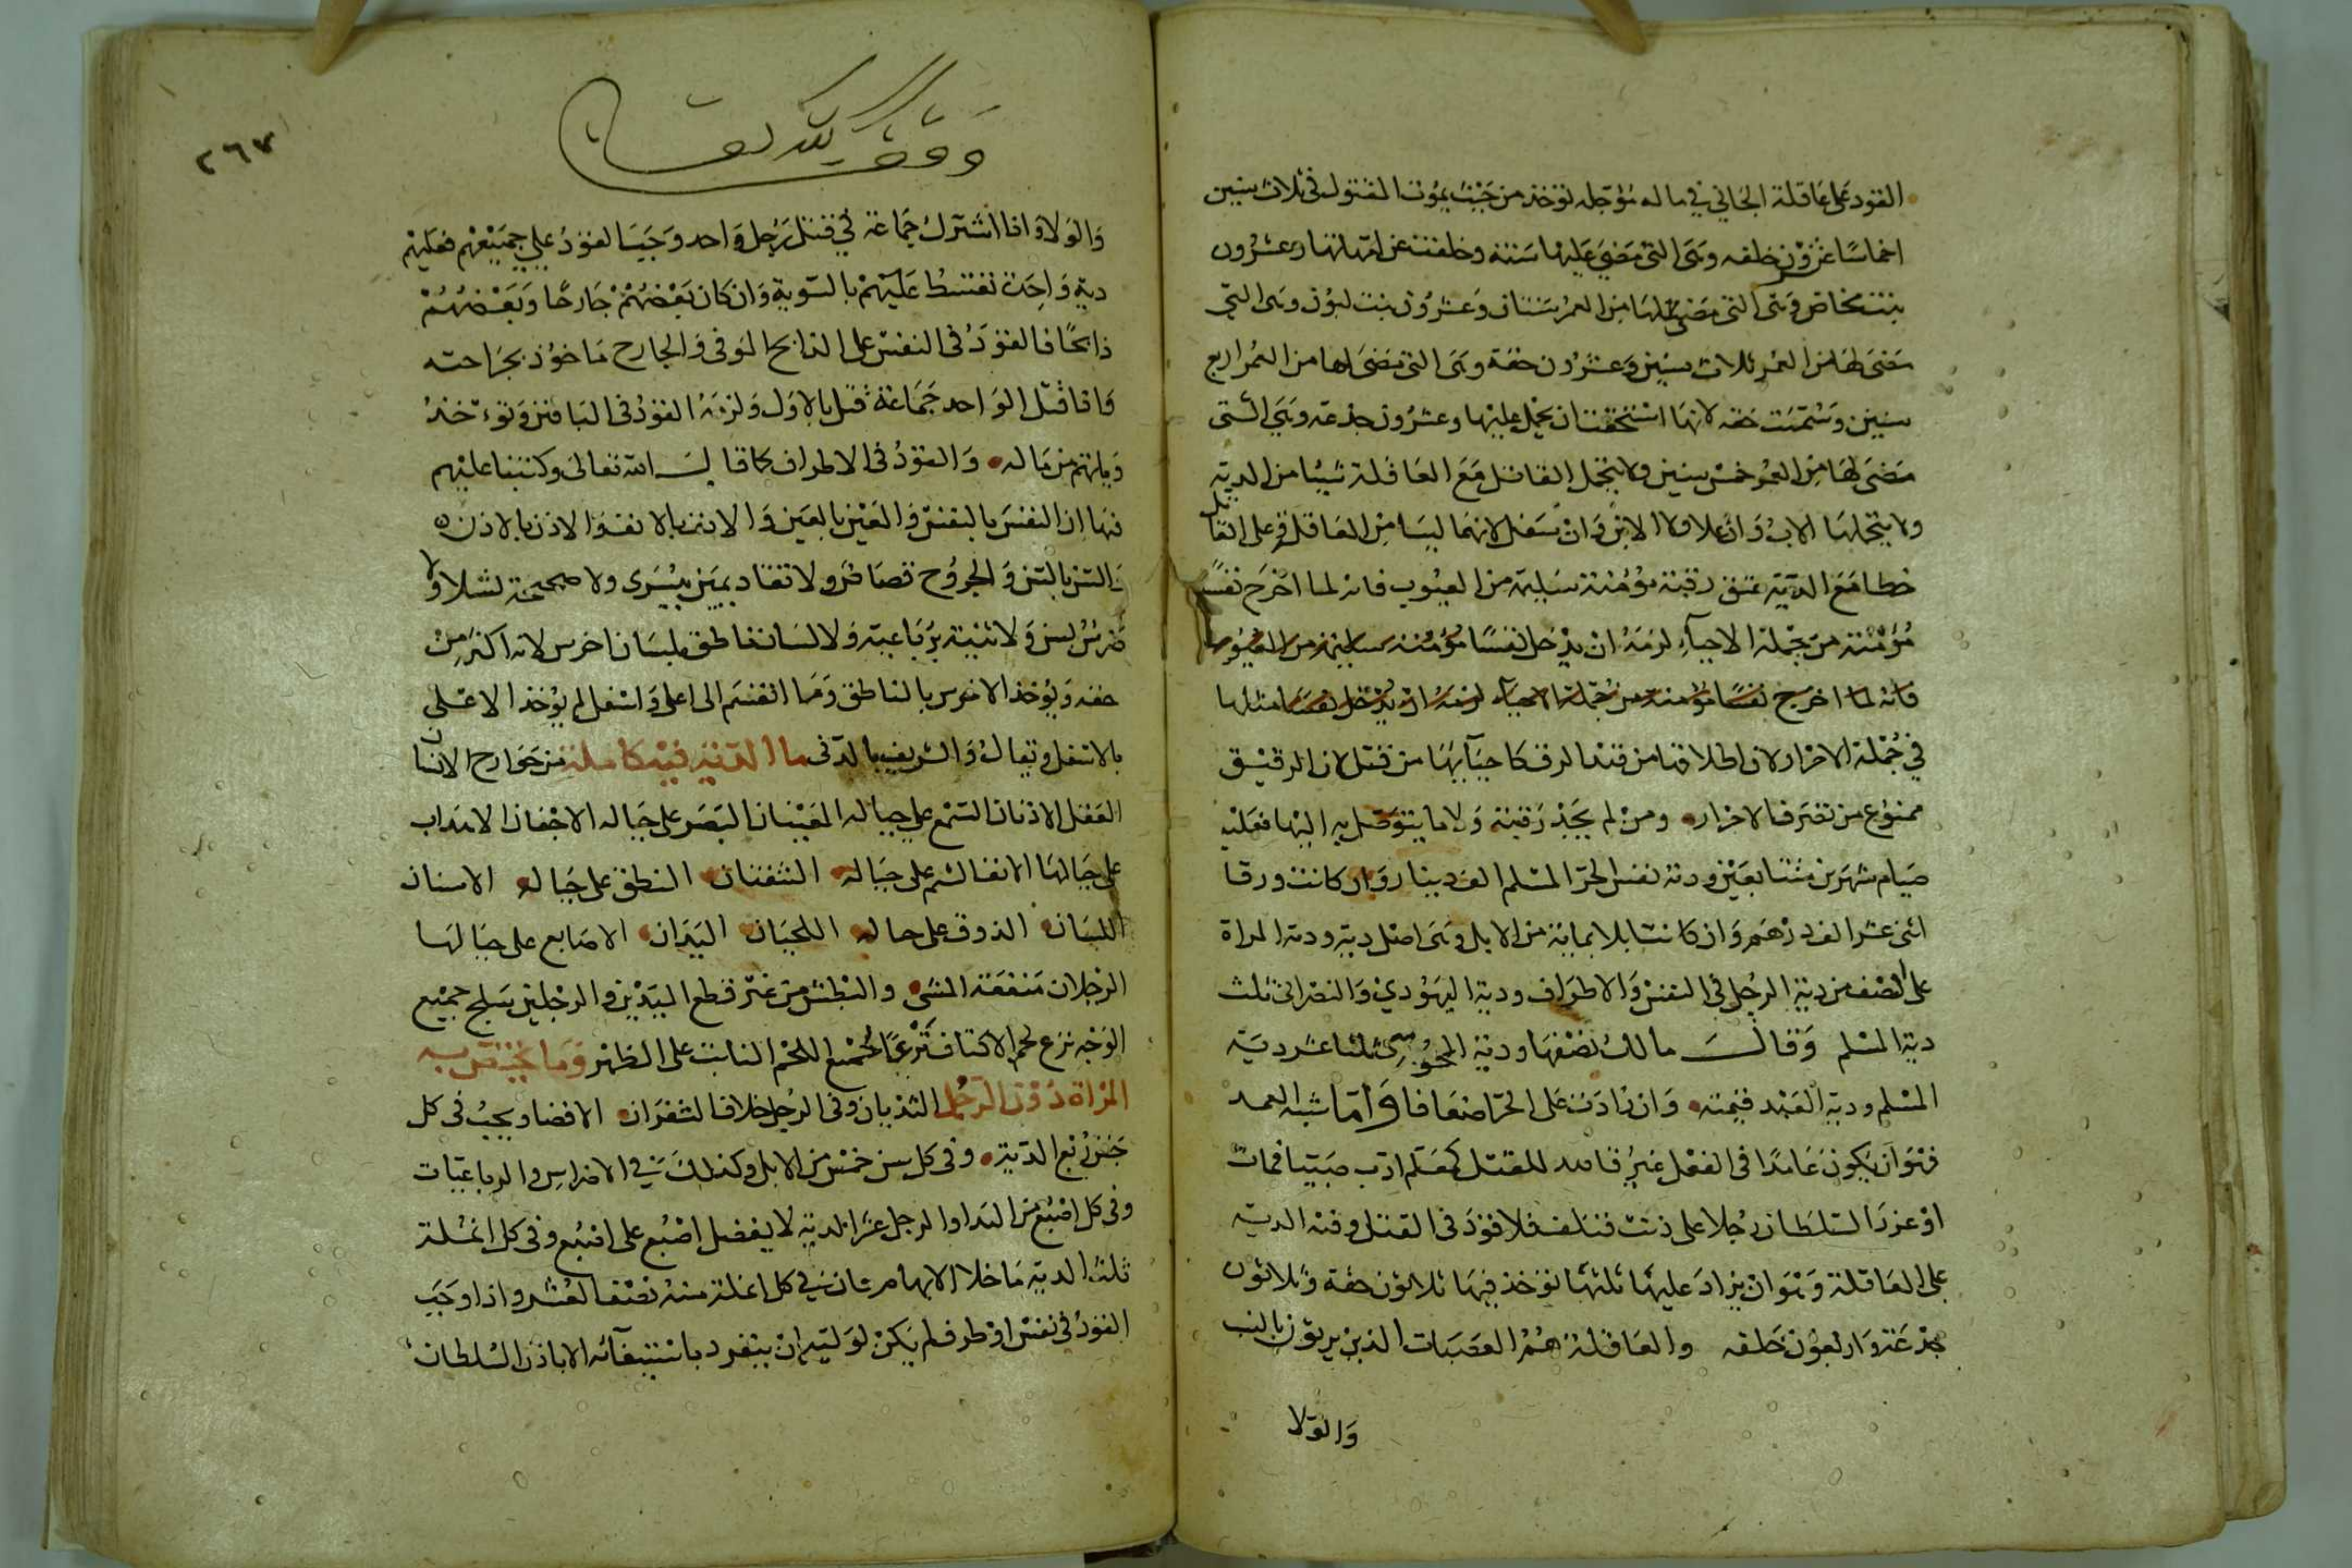 القود على عاقلة الجاني في ماله مؤجله تؤخذ من حيث يموت المقتول في ثلاث سنين
اخماسا عشرون خلفه وهى التي مضى عليها سنة وخلفت عن امهاتها وعشرون
بنت مخاض وهى التى مضى لها من العمر سنتان وعشرون بنت لبون وهى التي
مضى لها من العمر ثلاث سنين وعشرون حقة وهى التى مضى لها من العمر اربع
سنين وسميت حقه لانها استحقت ان يحمل عليها وعشرون جذعه وهى التى
مضى لها من العمر خمس سنين ولا يتحمل القاتل مع العاقلة شيئا من الدية
ولا يتحملها الاب وان علا ولا الابن وان سفل لانهما ليسا من العاقلة وعلى القاتل
خطا مع الدية عتق رقبة مؤمنة سليمة من العيوب فانه لما اخرج نفسا
مؤمنة من جملة الاحياء لزمه ان يدخل نفسا مؤمنة سليمة من العيوب
فانه لما اخرج نفسا مؤمنة من جملة الاحياء لزمه ان يدخل نفسا مثلها
في جملة الاحرار ولان اطلاقها من قيد الرق كاحيآئها من قتل لان الرقيق
ممنوع من تصرف الاحرار ومن لم يجد رقبة ولا ما يتوصل به اليها فعليه
صيام شهرين متتابعين ودية نفس الحر المسلم الف دينار وان كانت ورقا
اثنى عشر الف درهم وان كانت ابلا بماية من الابل وهى اصل دية ودية المراة
على النصف من دية الرجل فى النفس والاطراف ودية اليهودي والنصرانى ثلث
دية المسلم وقال مالك نصفها ودية المجوسي ثلثا عشر دية
المسلم ودية العبد قيمته وان زادت على الحر اضعافا وأما شبه العمد
فهو ان يكون عامدا فى الفعل غير قاصد للقتل كمعلم ادب صبيا فمات
او عزر السلطان رجلا على ذنب فتلف فلا قود فى القتل وفيه الدية
على العاقلة وهو ان يزاد عليها ثلثها تؤخذ فيها ثلاثون حقة وثلاثون
جذعة واربعون خلفه والعاقلة هم العصبات الذين يرثون بالنسب
والولا
وقف لله تعالى
٢٦٧
والولا واذا اشترك جماعة في قتل رجل واحد وجب القود علي جميعهم فعليهم
دية واحدة تقتسط عليهم بالسوية وان كان بعضهم جارحا وبعضهم
ذابحا فالقود فى النفس على الذابح الموفى والجارح ماخوذ بجراحته
واذا قتل الواحد جماعة قتل بالاول ولزمه القود فى الباقين وتؤخذ
دياتهم من ماله والقود فى الاطراف كما قال الله تعالى وكتبنا عليهم
فيها ان النفس بالنفس والعين بالعين والانف بالانف والاذن بالاذن
والسن بالسن والجروح قصاص ولا تقاد يمين بيسرى ولا صحيحة لشلا ولا
ضرس بسن ولا ثنية برباعية ولا لسان ناطق بلسان اخرس لانه اكثر من
حقه ويؤخذ الاخرس بالناطق وما انقسم الى اعلى واسفل لم يؤخذ الاعلى
بالاسفل ويقال والشريف بالدنى ما الدية فيه كاملة من جوارح الانسان
العقل الاذنان السمع على حياله العينان البصر على حياله الاجفان الاهداب
على حيالها الانف الشم على حياله الشفتان النطق على حياله الاسنان
اللسان الذوق على حاله اللحيان اليدان الاصابع على حيالها
الرجلان منفعة المشى والبطش من غير قطع اليدين والرجلين سلخ جميع
الوجه نزع لحم الاكتاف نزعا لجميع اللحم النابت على الظهر وما يختص به
المراة دون الرجل الثديان وفى الرجل خلاف الشفران الافضا ويجب فى كل
جفن ربع الدية وفى كل سن خمس من الابل وكذلك في الاضراس والرباعيات
وفى كل اصبع من اليد او الرجل عشر الدية لا يفضل اصبع على اصبع وفى كل انملة
ثلث الدية ما خلا الابهام فان في كل انملة منه نصف العشر واذا وجب
القود فى نفس او طرف لم يكن لوليه ان ينفرد باستيفآئه الا باذن السلطان